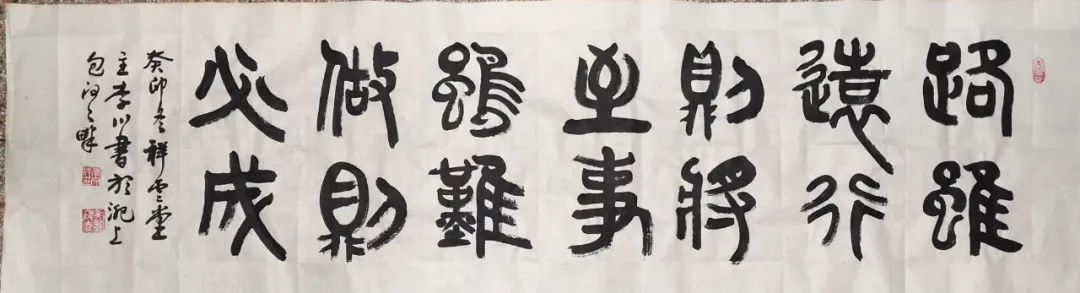 路雖
遠行
則將
至事
雖難
做則
必成
癸卯冬祥云堂
主李川書於淝上
包河之畔